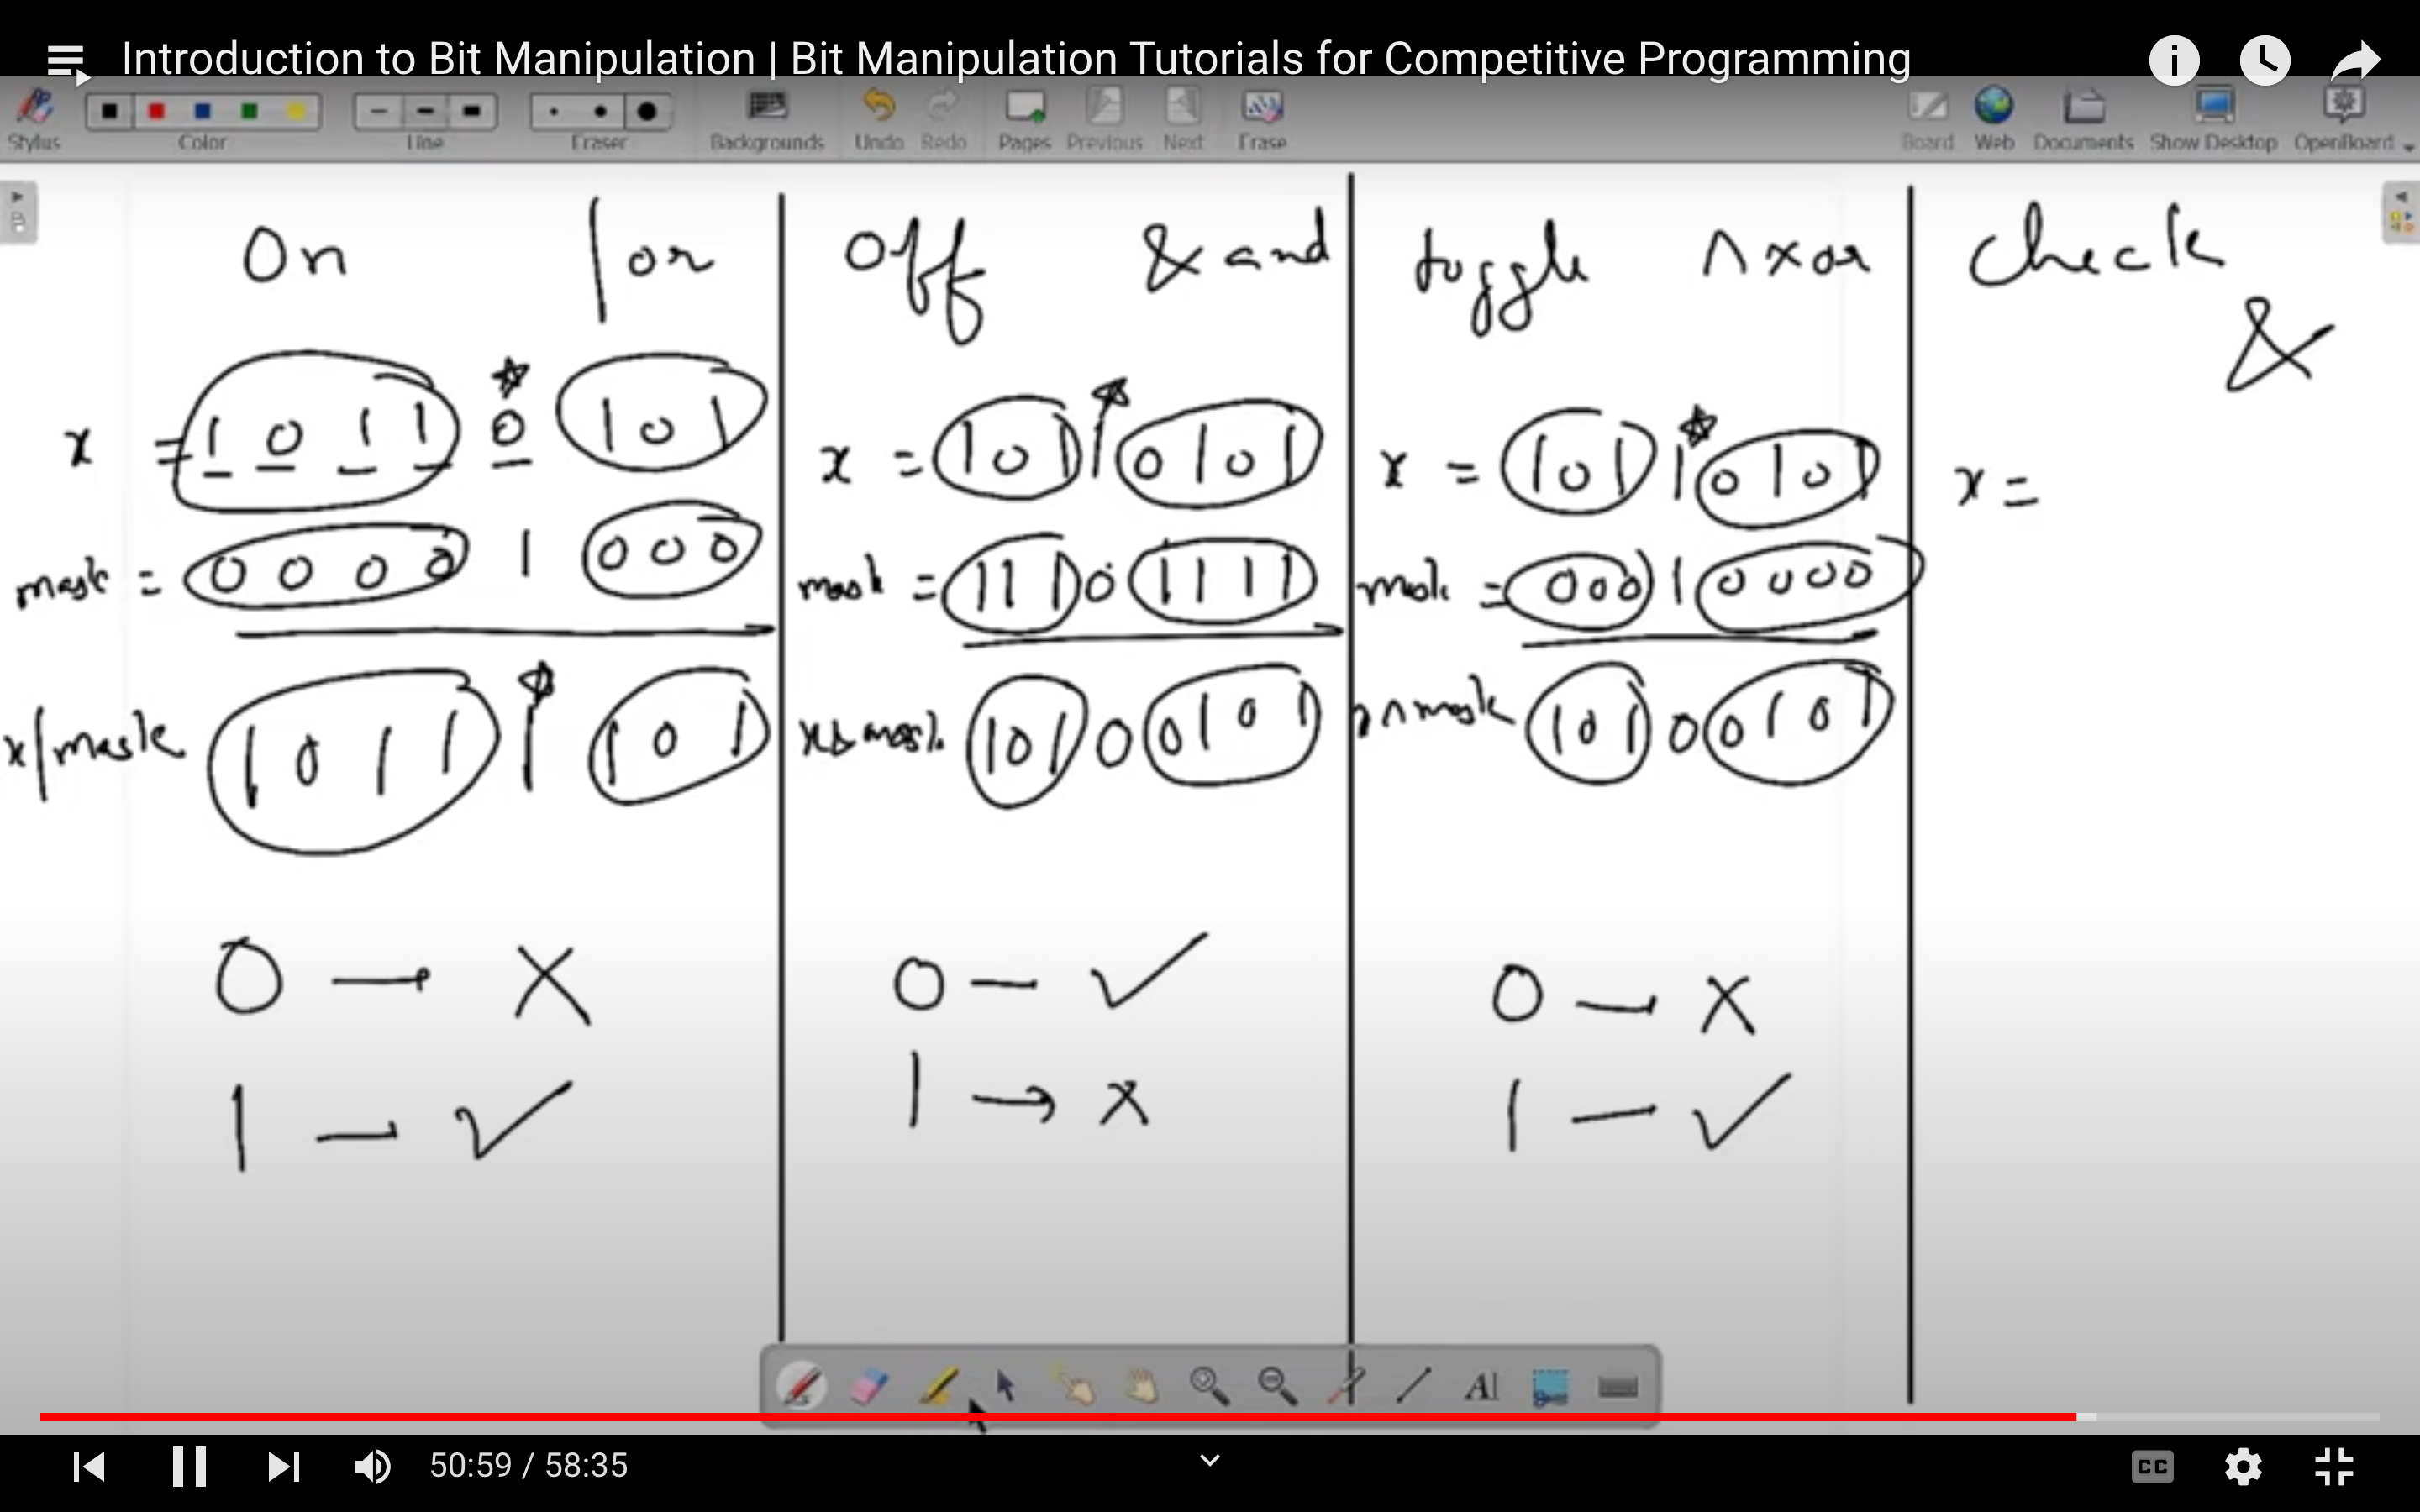 Introduction to Bit Manipulation | Bit Manipulation Tutorials for Competitive Programming
Stylus Color Line Eraser Backgrounds Undo Redo Pages Previous Next Erase Board Web Documents Show Desktop OpenBoard
On | or
x = 1 0 1 1 0 1 0 1
mask = 0 0 0 0 1 0 0 0
x|mask 1 0 1 1 1 1 0 1
0 → x
1 — ✓
Off & and
x = 1 0 1 1 0 1 0 1
mask = 1 1 1 0 1 1 1 1
x & mask 1 0 1 0 0 1 0 1
0 — ✓
1 → x
toggle ^ xor
x = 1 0 1 1 0 1 0 1
mask = 0 0 0 1 0 0 0 0
^ mask 1 0 1 0 0 1 0 1
0 — x
1 — ✓
Check
&
x =
AI
50:59 / 58:35
CC